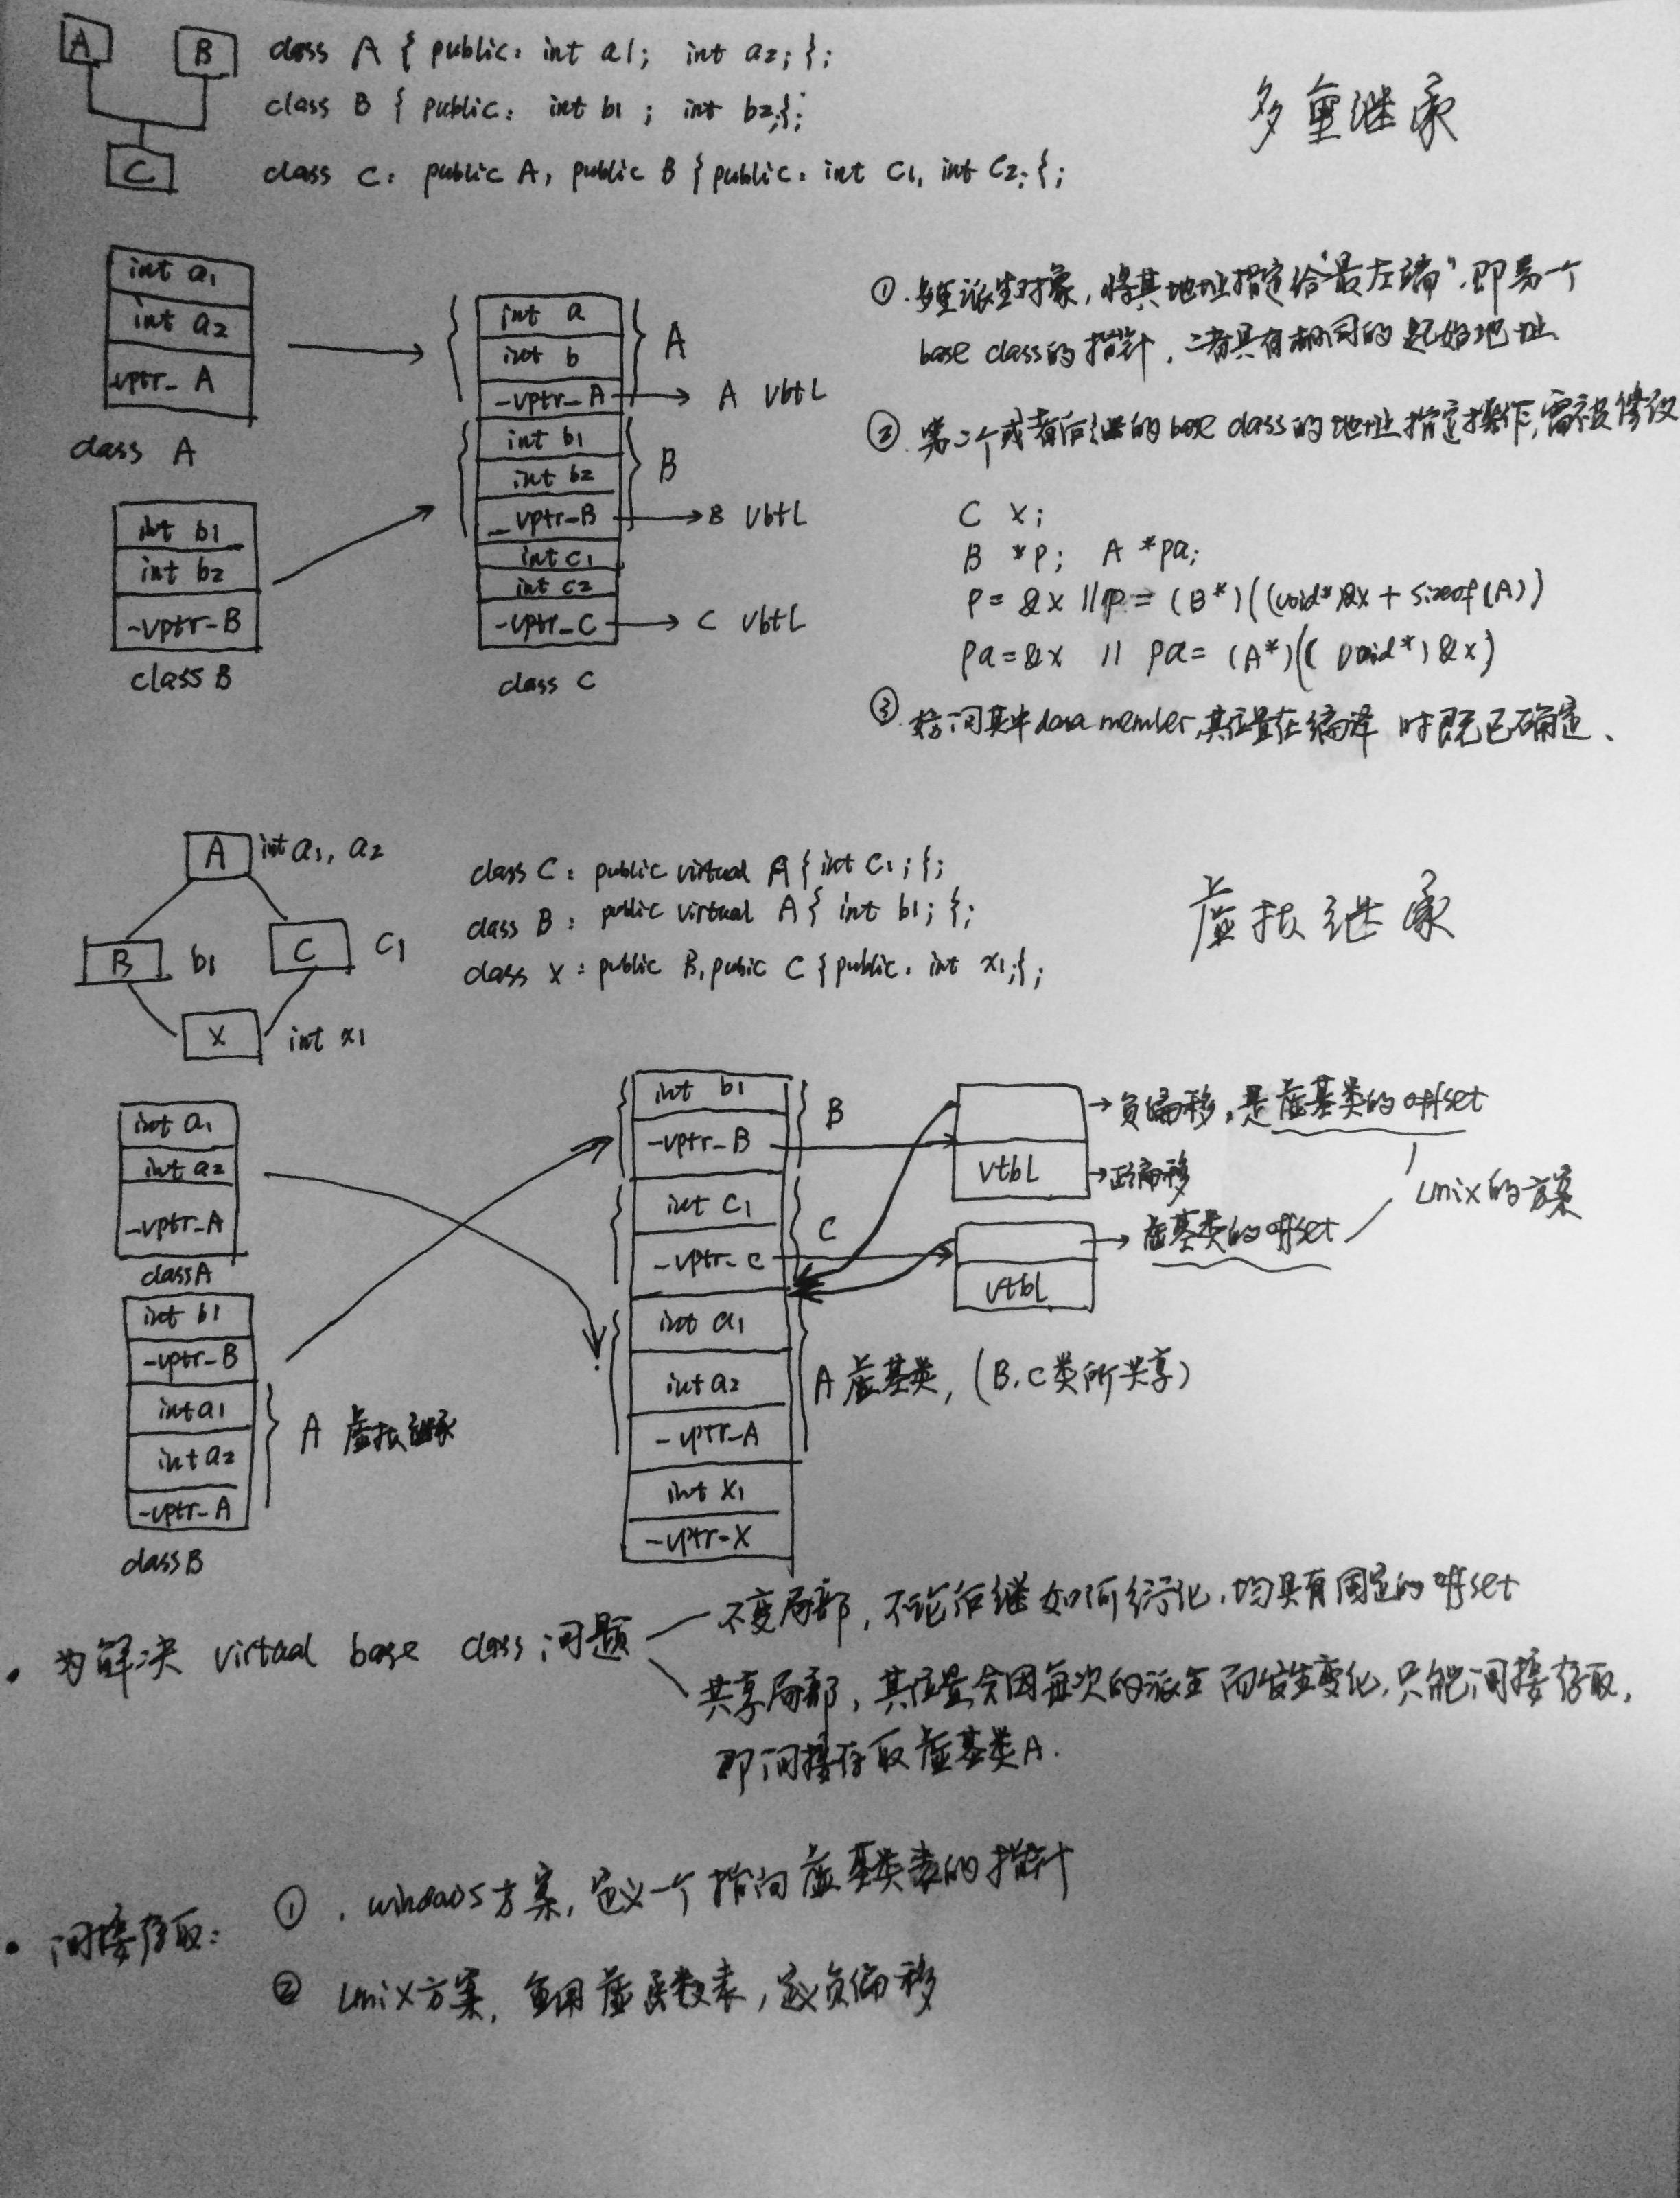 A
B
class A { public: int a1; int a2; };
class B { public: int b1 ; int b2;};
多重继承
C
class C: public A, public B { public: int C1, int C2; {;
int a1
int a2
-vptr- A
class A
int b1
int b2
-vptr-B
class B
int a
int b
-vptr-A
A
A VbtL
int b1
int b2
_ vptr-B
B
B VbtL
int c1
int c2
-vptr-C
C VbtL
class C
①. 多重派生对象, 将其地址指定给"最左端", 即第一个
base class的指针, 二者具有相同的起始地址
②. 第二个或者后继的base class的地址指定操作, 需被修改
C x;
B *p; A *pa;
p= &x //p= (B*)((void*)&x + sizeof(A))
pa=&x // pa= (A*)(( void*) &x)
③. 访问其中data member, 其位置在编译 时既已确定、
A
int a1, a2
B
b1
C
C1
X
int x1
class C: public virtual A { int C1; {;
class B: public virtual A { int b1; {;
class x: public B, pubic C { public: int x1;{;
虚拟继承
int a1
int a2
-vptr-A
class A
int b1
-vptr-B
int a1
int a2
-vptr-A
A 虚拟继承
class B
int b1
-vptr-B
B
int C1
-vptr-c
C
int a1
int a2
-vptr-A
A 虚基类, (B.C类所共享)
int X1
-vptr-X
负偏移, 是虚基类的offset
vtbL
正偏移
虚基类的offset
vtbL
Unix的方案
• 为解决 virtual base class 问题
不变局部, 不论后继如何衍化, 均具有固定的offset
共享局部, 其位置会因每次的派生而发生变化, 只能间接存取,
即间接存取虚基类A.
• 间接存取:
① . windows方案, 定义一个指向虚基类表的指针
② Unix方案, 重用虚函数表, 定义负偏移